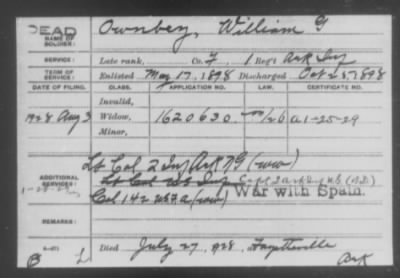 DEAD
NAME OF SOLDIER: Ownbey, William G
SERVICE: Late rank, Co. F, 1 Reg't Ark Inf
TERM OF SERVICE: Enlisted May 17, 1898 Discharged Oct 25, 1898
DATE OF FILING. CLASS. APPLICATION NO. LAW. CERTIFICATE NO.
Invalid,
1928 Aug 3 Widow, 1620630 A-1-25-29
Minor,
ADDITIONAL SERVICES: Lt Col 2 Inf Ark NG (WW)
1-25-29 Lt Col US Inf
Col 142 (WW) War with Spain.
REMARKS:
Died July 27, 1928, Fayetteville
Ark